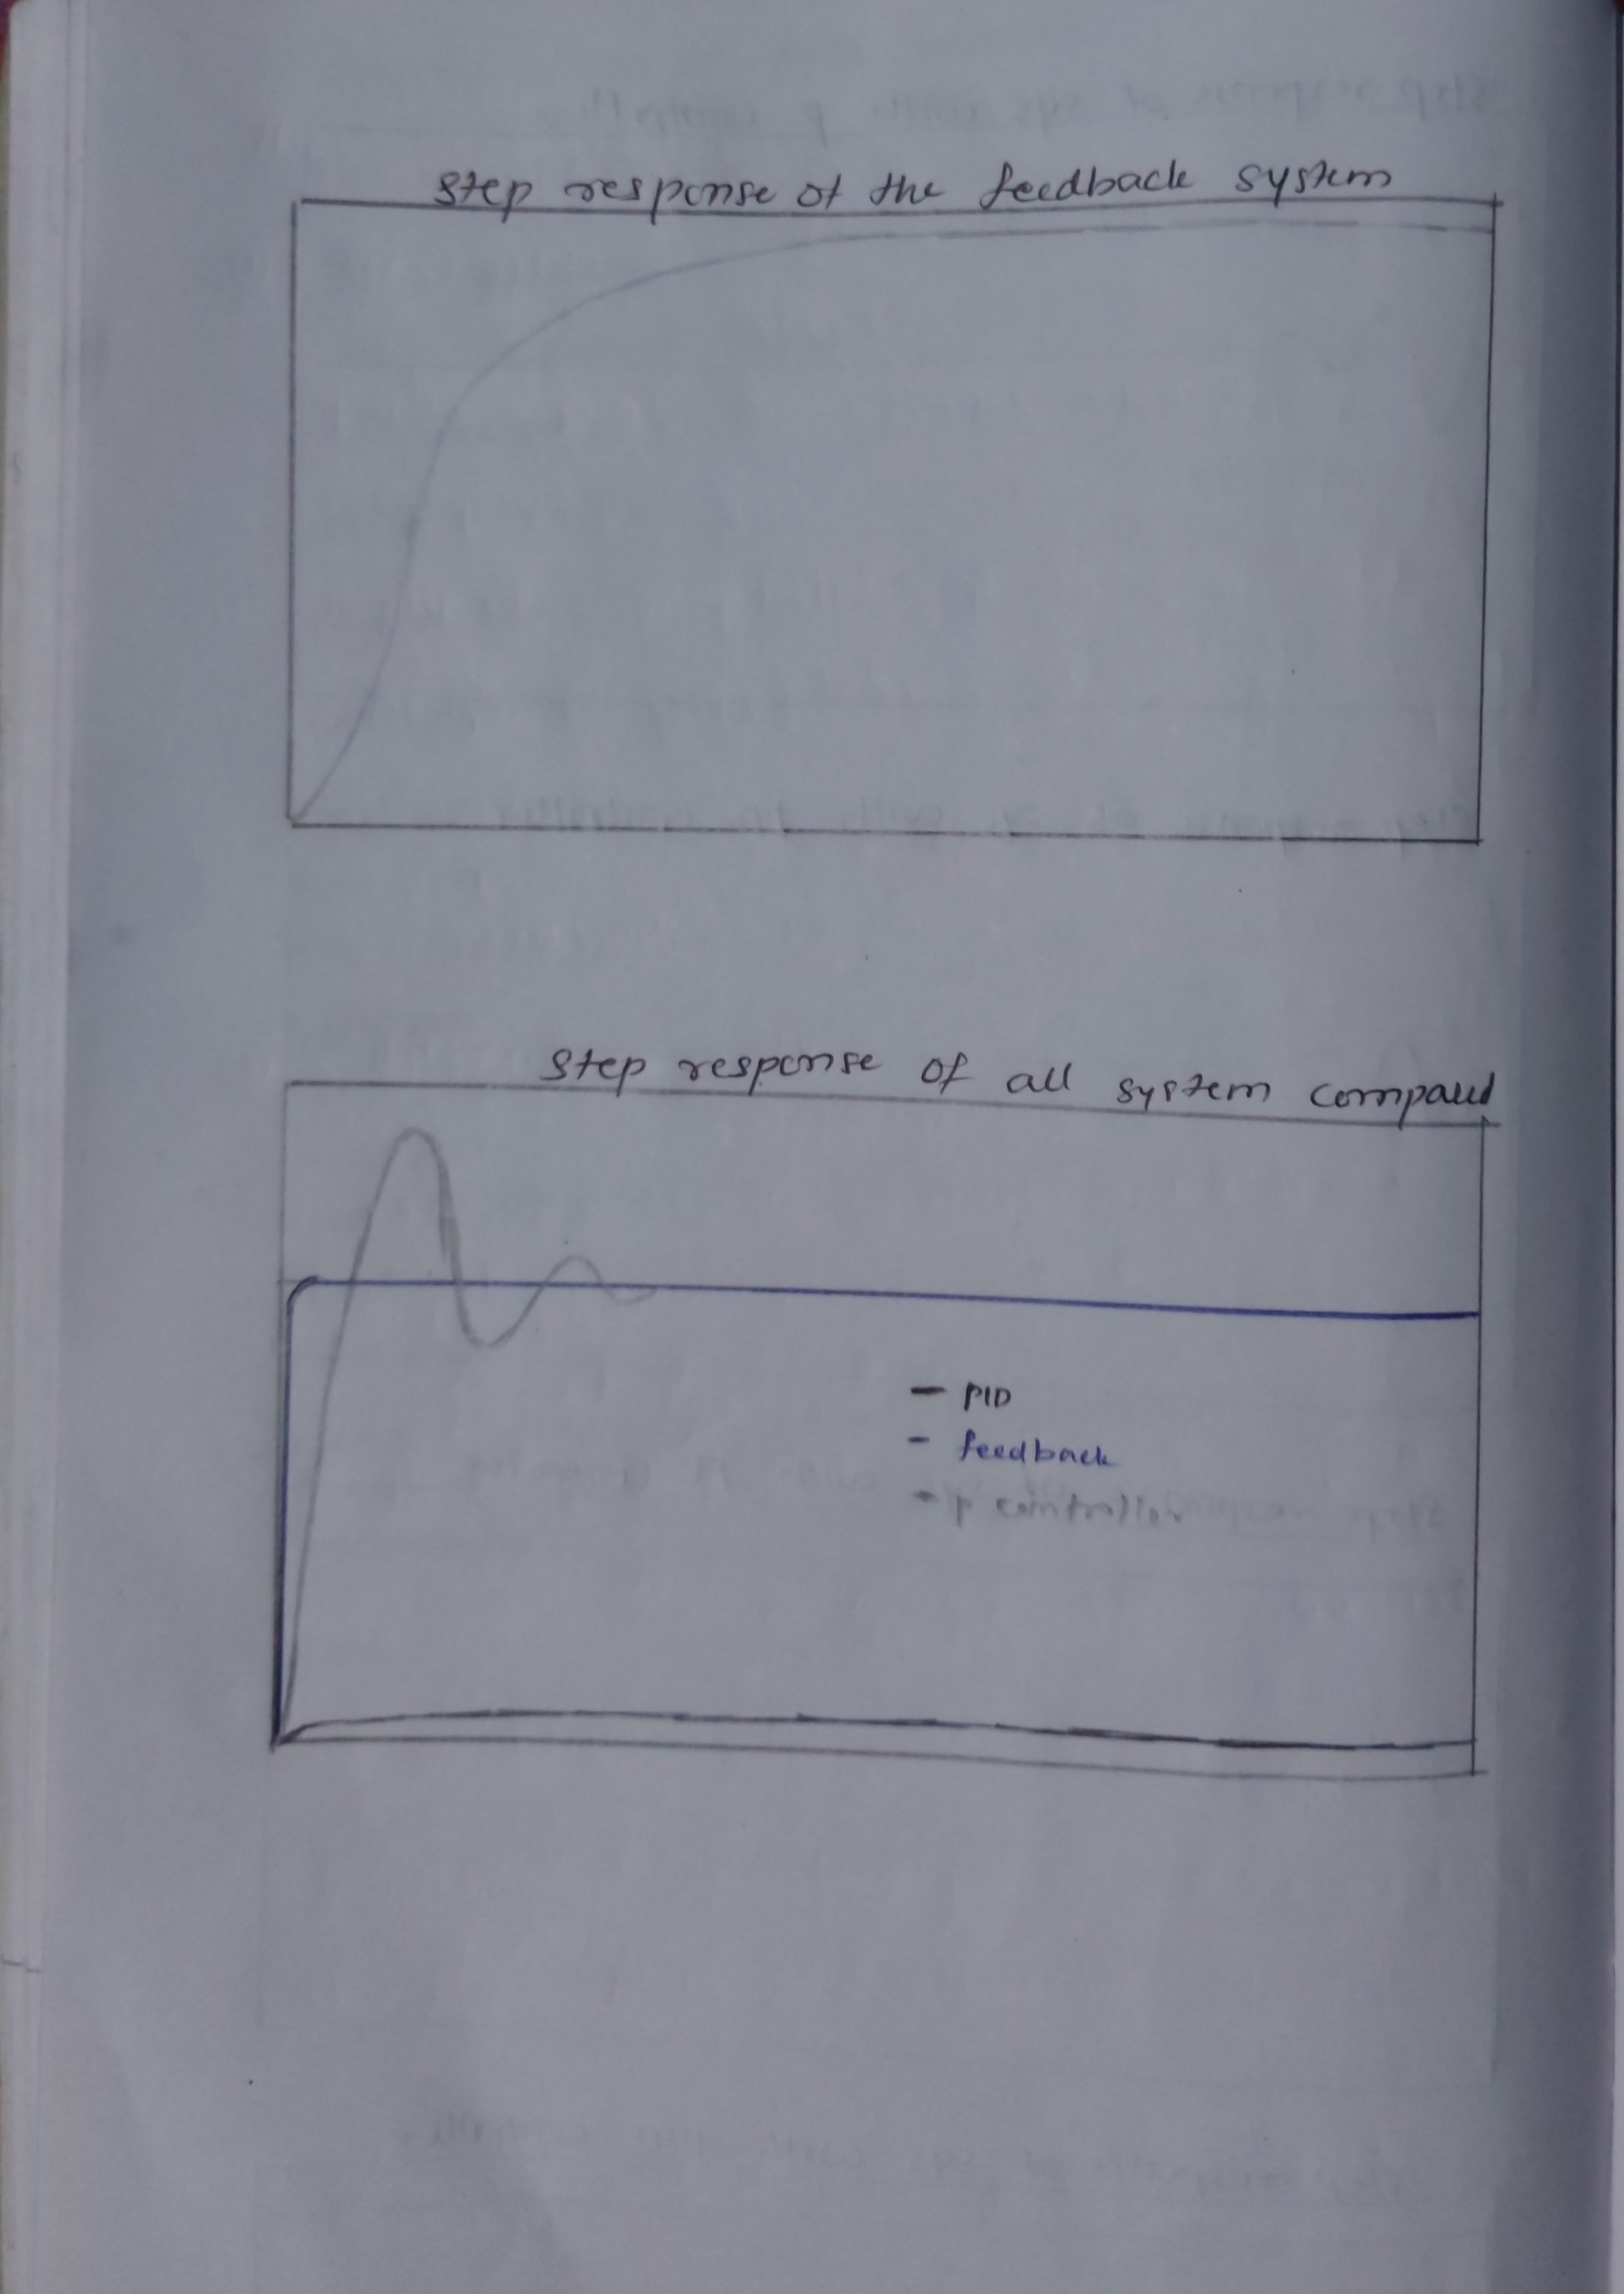 Step response of the feedback system
Step response of all system compared
— PID
- feedback
- p controller